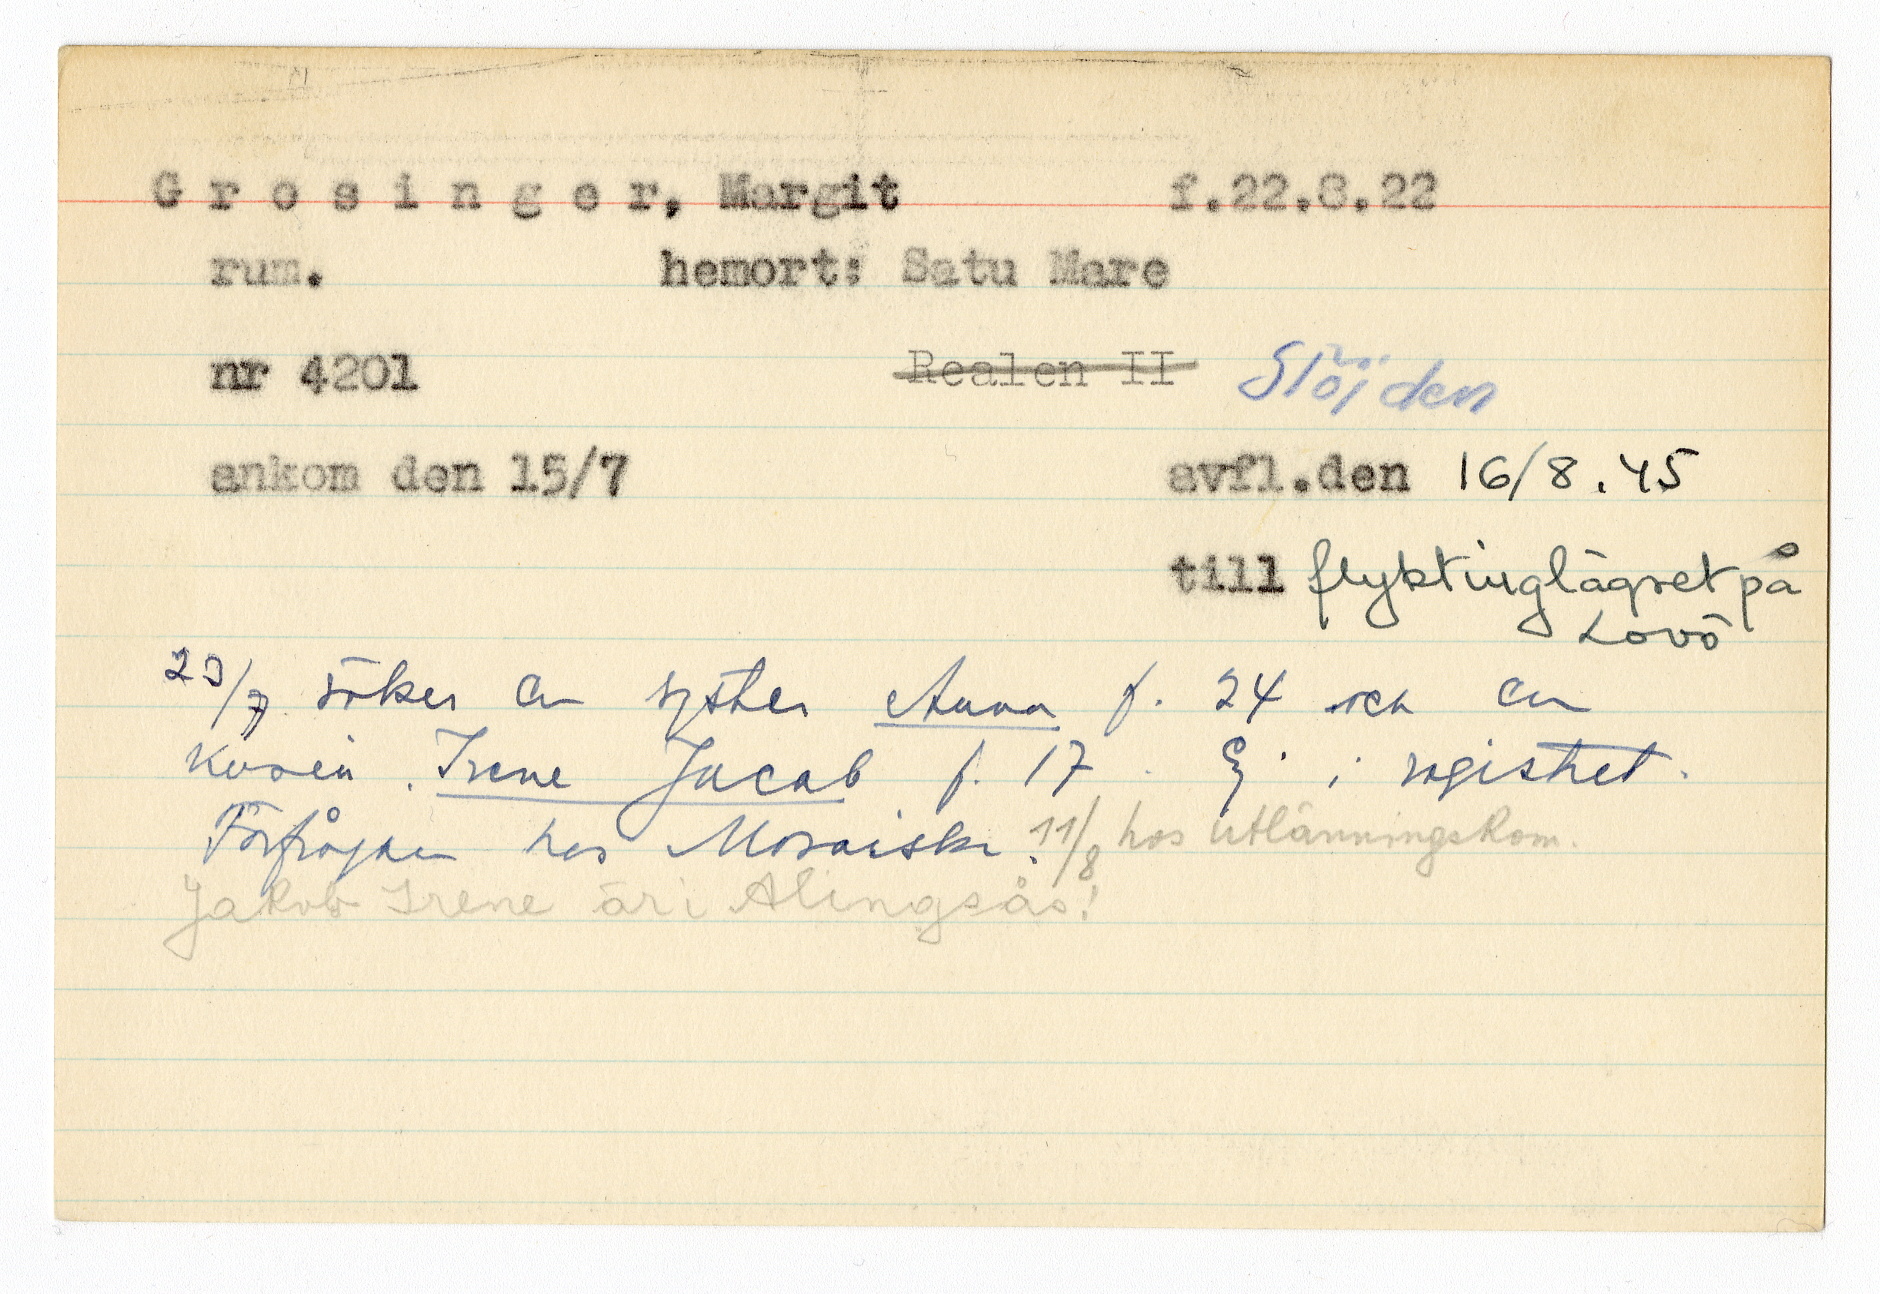 G r o s i n g e r, Margit f.22.8.22
rum. hemort: Satu Mare
nr 4201 Realen II Slöjden
ankom den 15/7 avfl.den 16/8.45
till flyktinglägret på
Lovö
23/7 söker en syster Anna f. 24 och en
kusin. Irene Jacob f. 17. Ej i registret.
Förfrågan hos Mosaiska. 11/8 hos Utlänningskom.
Jakob Irene är i Alingsås!